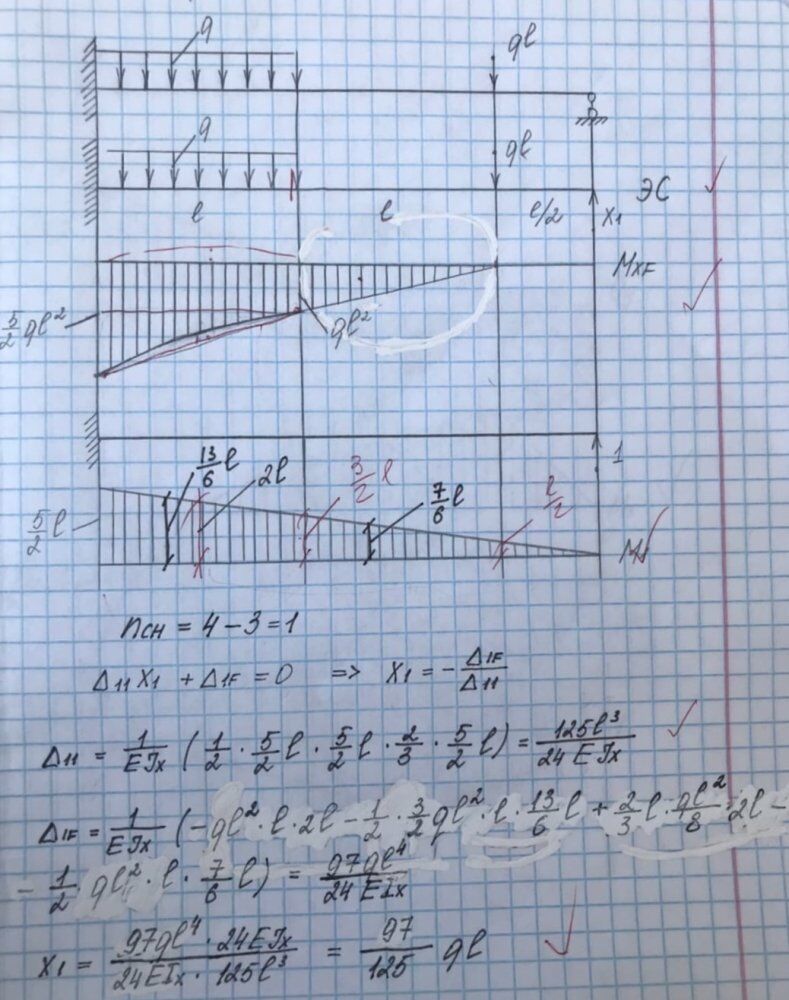 q
ql
q
ql
ЭС
l
l
l/2
X1
MXF
5/2 ql²
ql²
1
13/6 l
2l
3/2 l
7/6 l
l/2
5/2 l
nсн = 4 - 3 = 1
Δ11 X1 + Δ1F = 0 => X1 = - Δ1F/Δ11
Δ11 = 1/EJx (1/2 · 5/2 l · 5/2 l · 2/3 · 5/2 l) = 125l³/24EJx
Δ1F = 1/EJx (-ql² · l · 2l - 1/2 · 3/2 ql² · l · 13/6 l + 2/3 l · ql²/8 · 2l -
- 1/2 · ql² · l · 7/6 l) = 97ql⁴/24EIx
X1 = 97ql⁴ · 24EJx / 24EIx · 125l³ = 97/125 ql